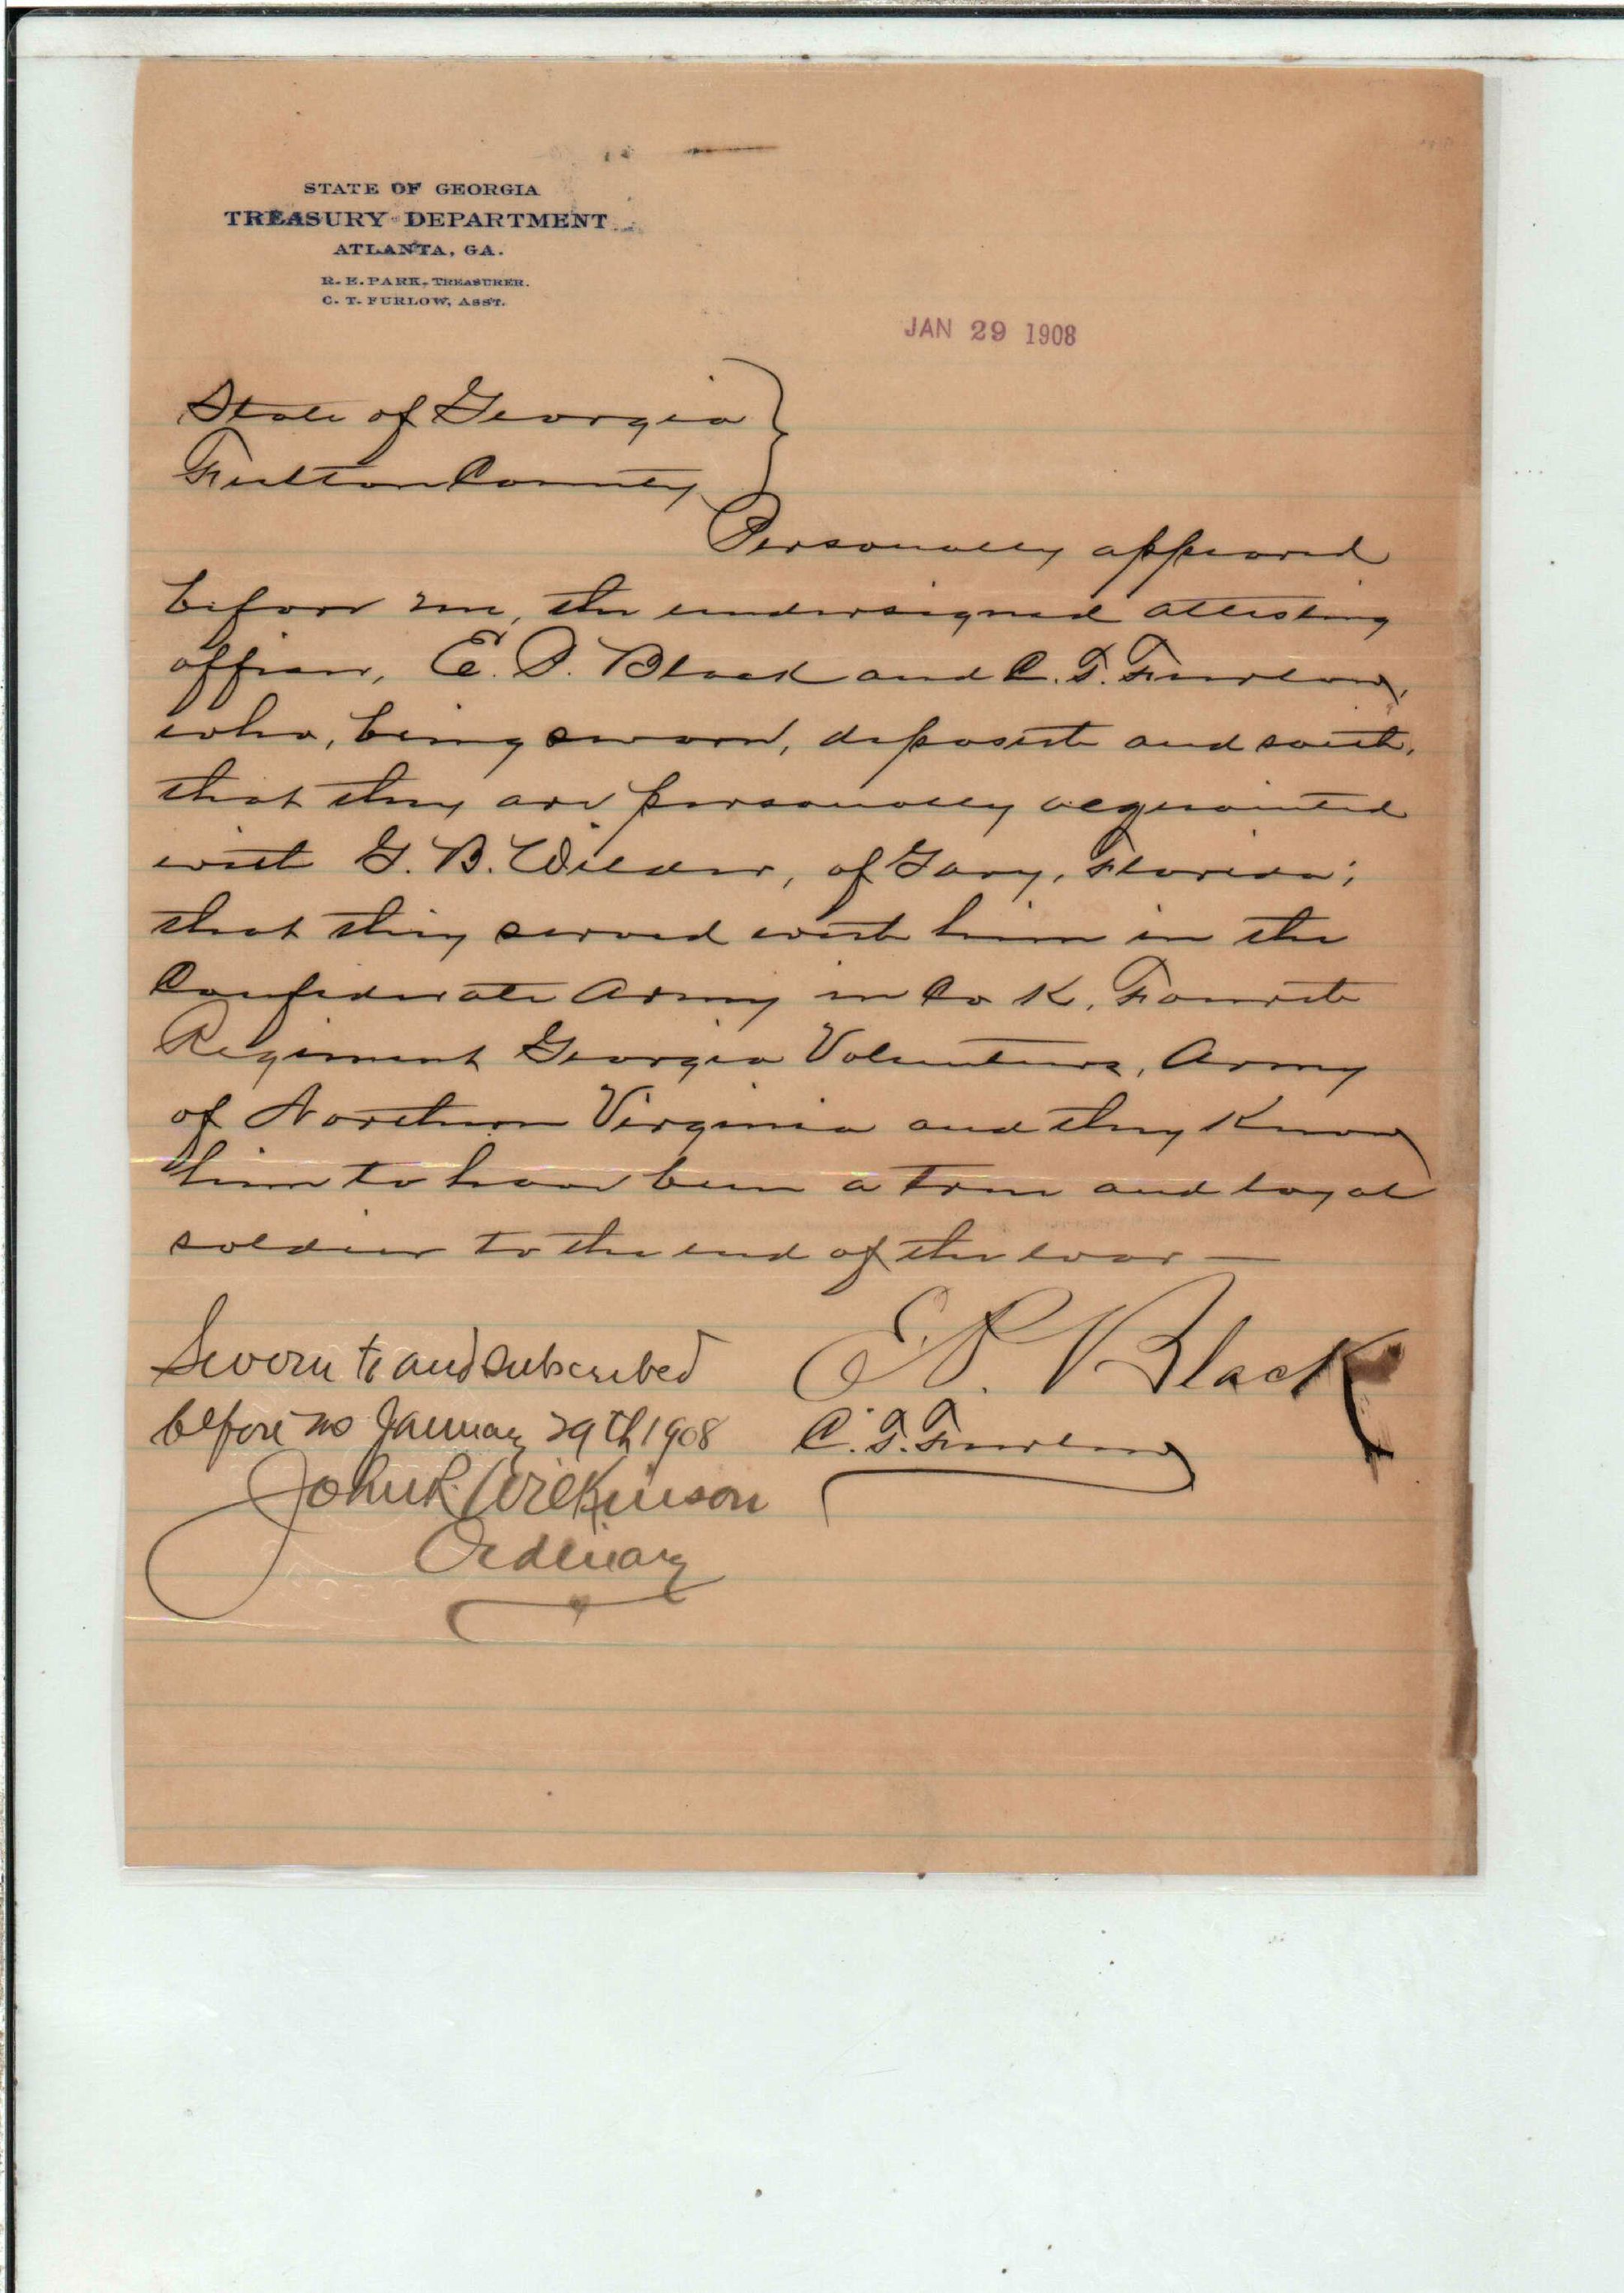 STATE OF GEORGIA
TREASURY DEPARTMENT
ATLANTA, GA.
R. E. PARK, TREASURER.
C. T. FURLOW, ASST.
JAN 29 1908
State of Georgia
Fulton County
Personally appeared
before me, the undersigned attesting
officer, E. P. Black and C. T. Furlow,
who, being sworn, deposeth and saith,
that they are personally acquainted
with G. B. Wilder, of Gary, Florida;
that they served with him in the
Confederate Army in Co K, Fourth
Regiment Georgia Volunteers, Army
of Northern Virginia and they know
him to have been a true and loyal
soldier to the end of the war —
Sworn to and subscribed
before me January 29th 1908
E. P. Black
C. T. Furlow
John R. Wilkinson
Ordinary